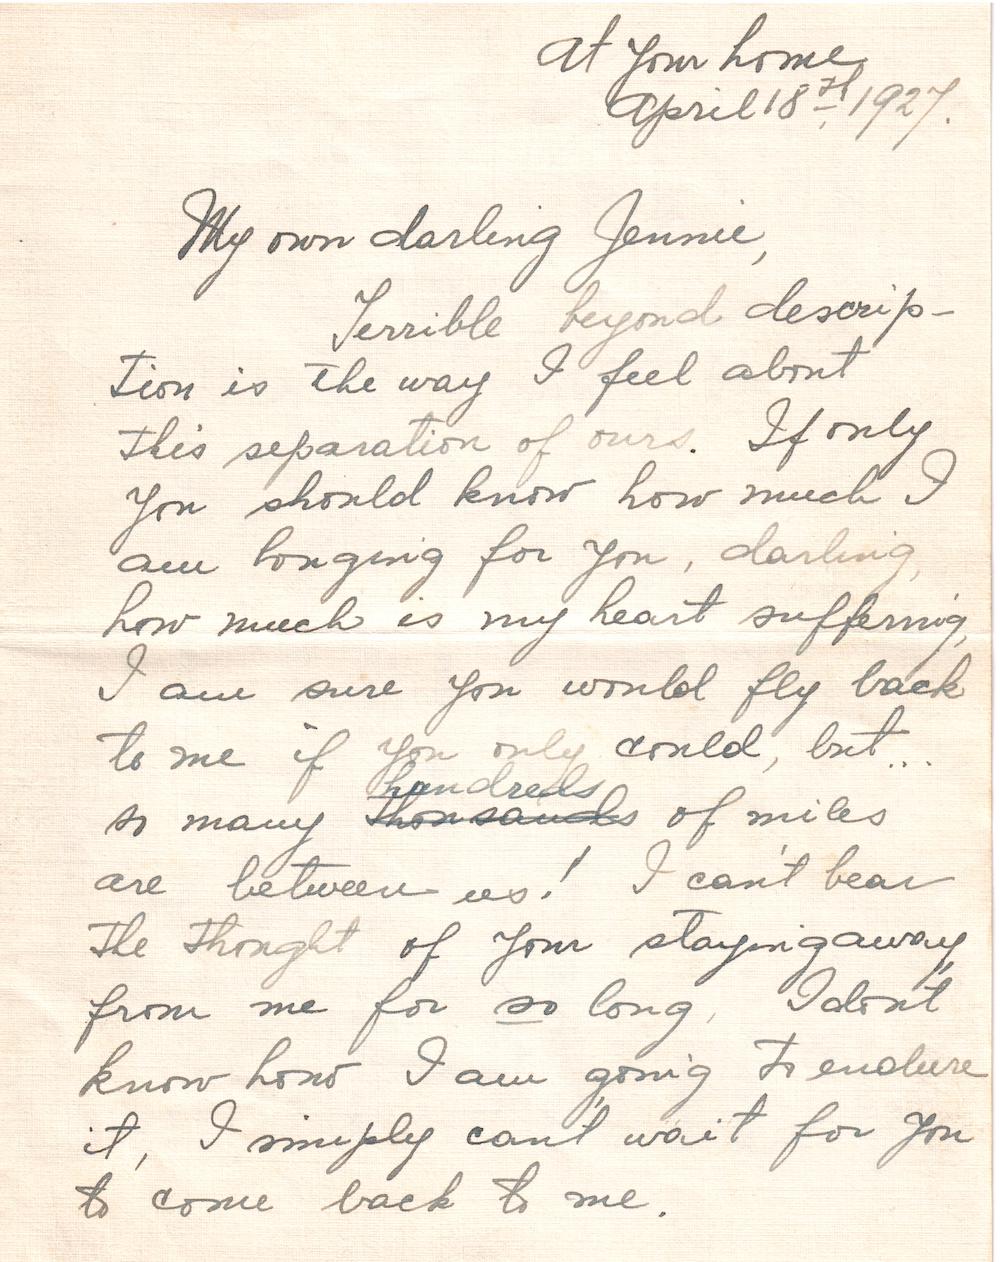 At your home
April 18th, 1927.
My own darling Jennie,
Terrible beyond descrip-
tion is the way I feel about
this separation of ours. If only
you should know how much I
am longing for you, darling,
how much is my heart suffering,
I am sure you would fly back
to me if you only could, but...
hundreds
so many thousands of miles
are between us! I can't bear
the thought of your staying away
from me for so long, I don't
know how I am going to endure
it, I simply can't wait for you
to come back to me.